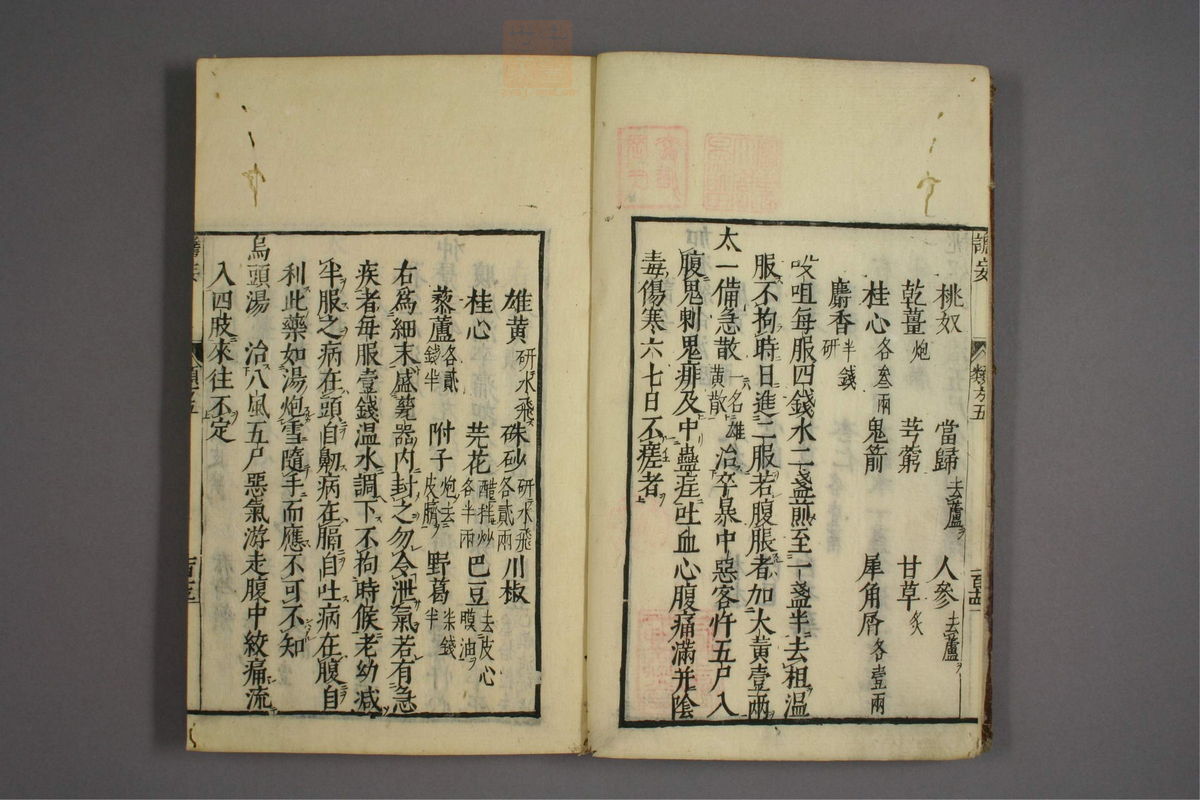 譫妄 類方五
桃奴 當歸去蘆 人參去蘆
乾薑炮 芎藭 甘草炙
桂心各叁兩 鬼箭 犀角屑各壹兩
麝香半錢研
㕮咀每服四錢水二盞煎至一盞半去柤溫
服不拘時日進二服若腹脹者加大黃壹兩
太一備急散一名雄黃散 治卒暴中惡客忤五尸入
腹鬼刺鬼痱及中蠱疰吐血心腹痛滿并陰
毒傷寒六七日不瘥者
雄黃研水飛 硃砂研水飛各貳兩 川椒
桂心 芫花醋拌炒各半兩 巴豆去皮心膜油
藜蘆各貳錢半 附子炮去皮臍 野葛柒錢半
右爲細末盛甆器內封之勿令泄氣若有急
疾者每服壹錢溫水調下不拘時候老幼減
半服之病在頭自衂病在膈自吐病在腹自
利此藥如湯炮雪隨手而應不可不知
烏頭湯 治八風五尸惡氣游走腹中絞痛流
入四肢來往不定